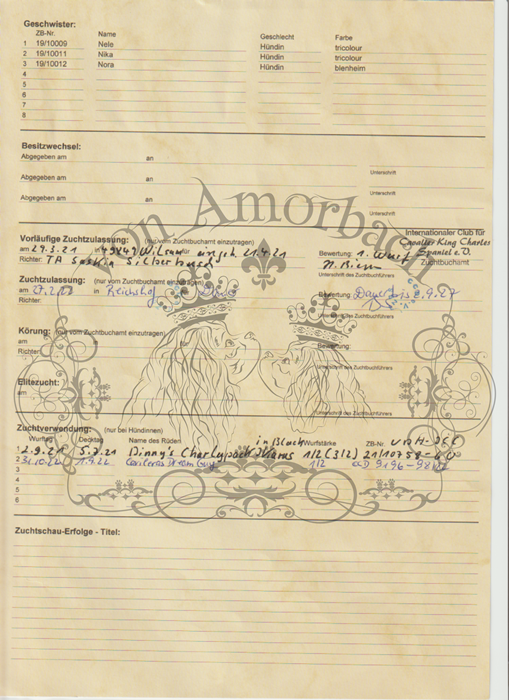 Geschwister:
ZB-Nr. Name Geschlecht Farbe
1 19/10009 Nele Hündin tricolour
2 19/10011 Nika Hündin tricolour
3 19/10012 Nora Hündin blenheim
4
5
6
7
8
Besitzwechsel:
Abgegeben am an
Unterschrift
Abgegeben am an
Unterschrift
Abgegeben am an
Unterschrift
von Amorbach
Internationaler Club für
Cavalier King Charles
Spaniel e.V.
Zuchtbuchamt
Vorläufige Zuchtzulassung: (nur vom Zuchtbuchamt einzutragen)
am 27.3.21 in 49849 Wilsum eingeh. 21.4.21 Bewertung: 1. Wurf
Richter: TA Saskia Silberhorn
Unterschrift des Zuchtbuchführers
Zuchtzulassung: (nur vom Zuchtbuchamt einzutragen)
am in Reichshof Bewertung:
Richter:
Unterschrift des Zuchtbuchführers
Körung: (nur vom Zuchtbuchamt einzutragen)
am in Bewertung:
Richter:
Unterschrift des Zuchtbuchführers
Elitezucht:
am
Unterschrift des Zuchtbuchführers
Zuchtverwendung: (nur bei Hündinnen)
Wurftag Decktag Name des Rüden Wurfstärke ZB-Nr.
1 2.9.21 5.7.21 Dinny's 1/2 (3/2) 21/10758-60
2 1/2
3
4
5
6
Zuchtschau-Erfolge - Titel: